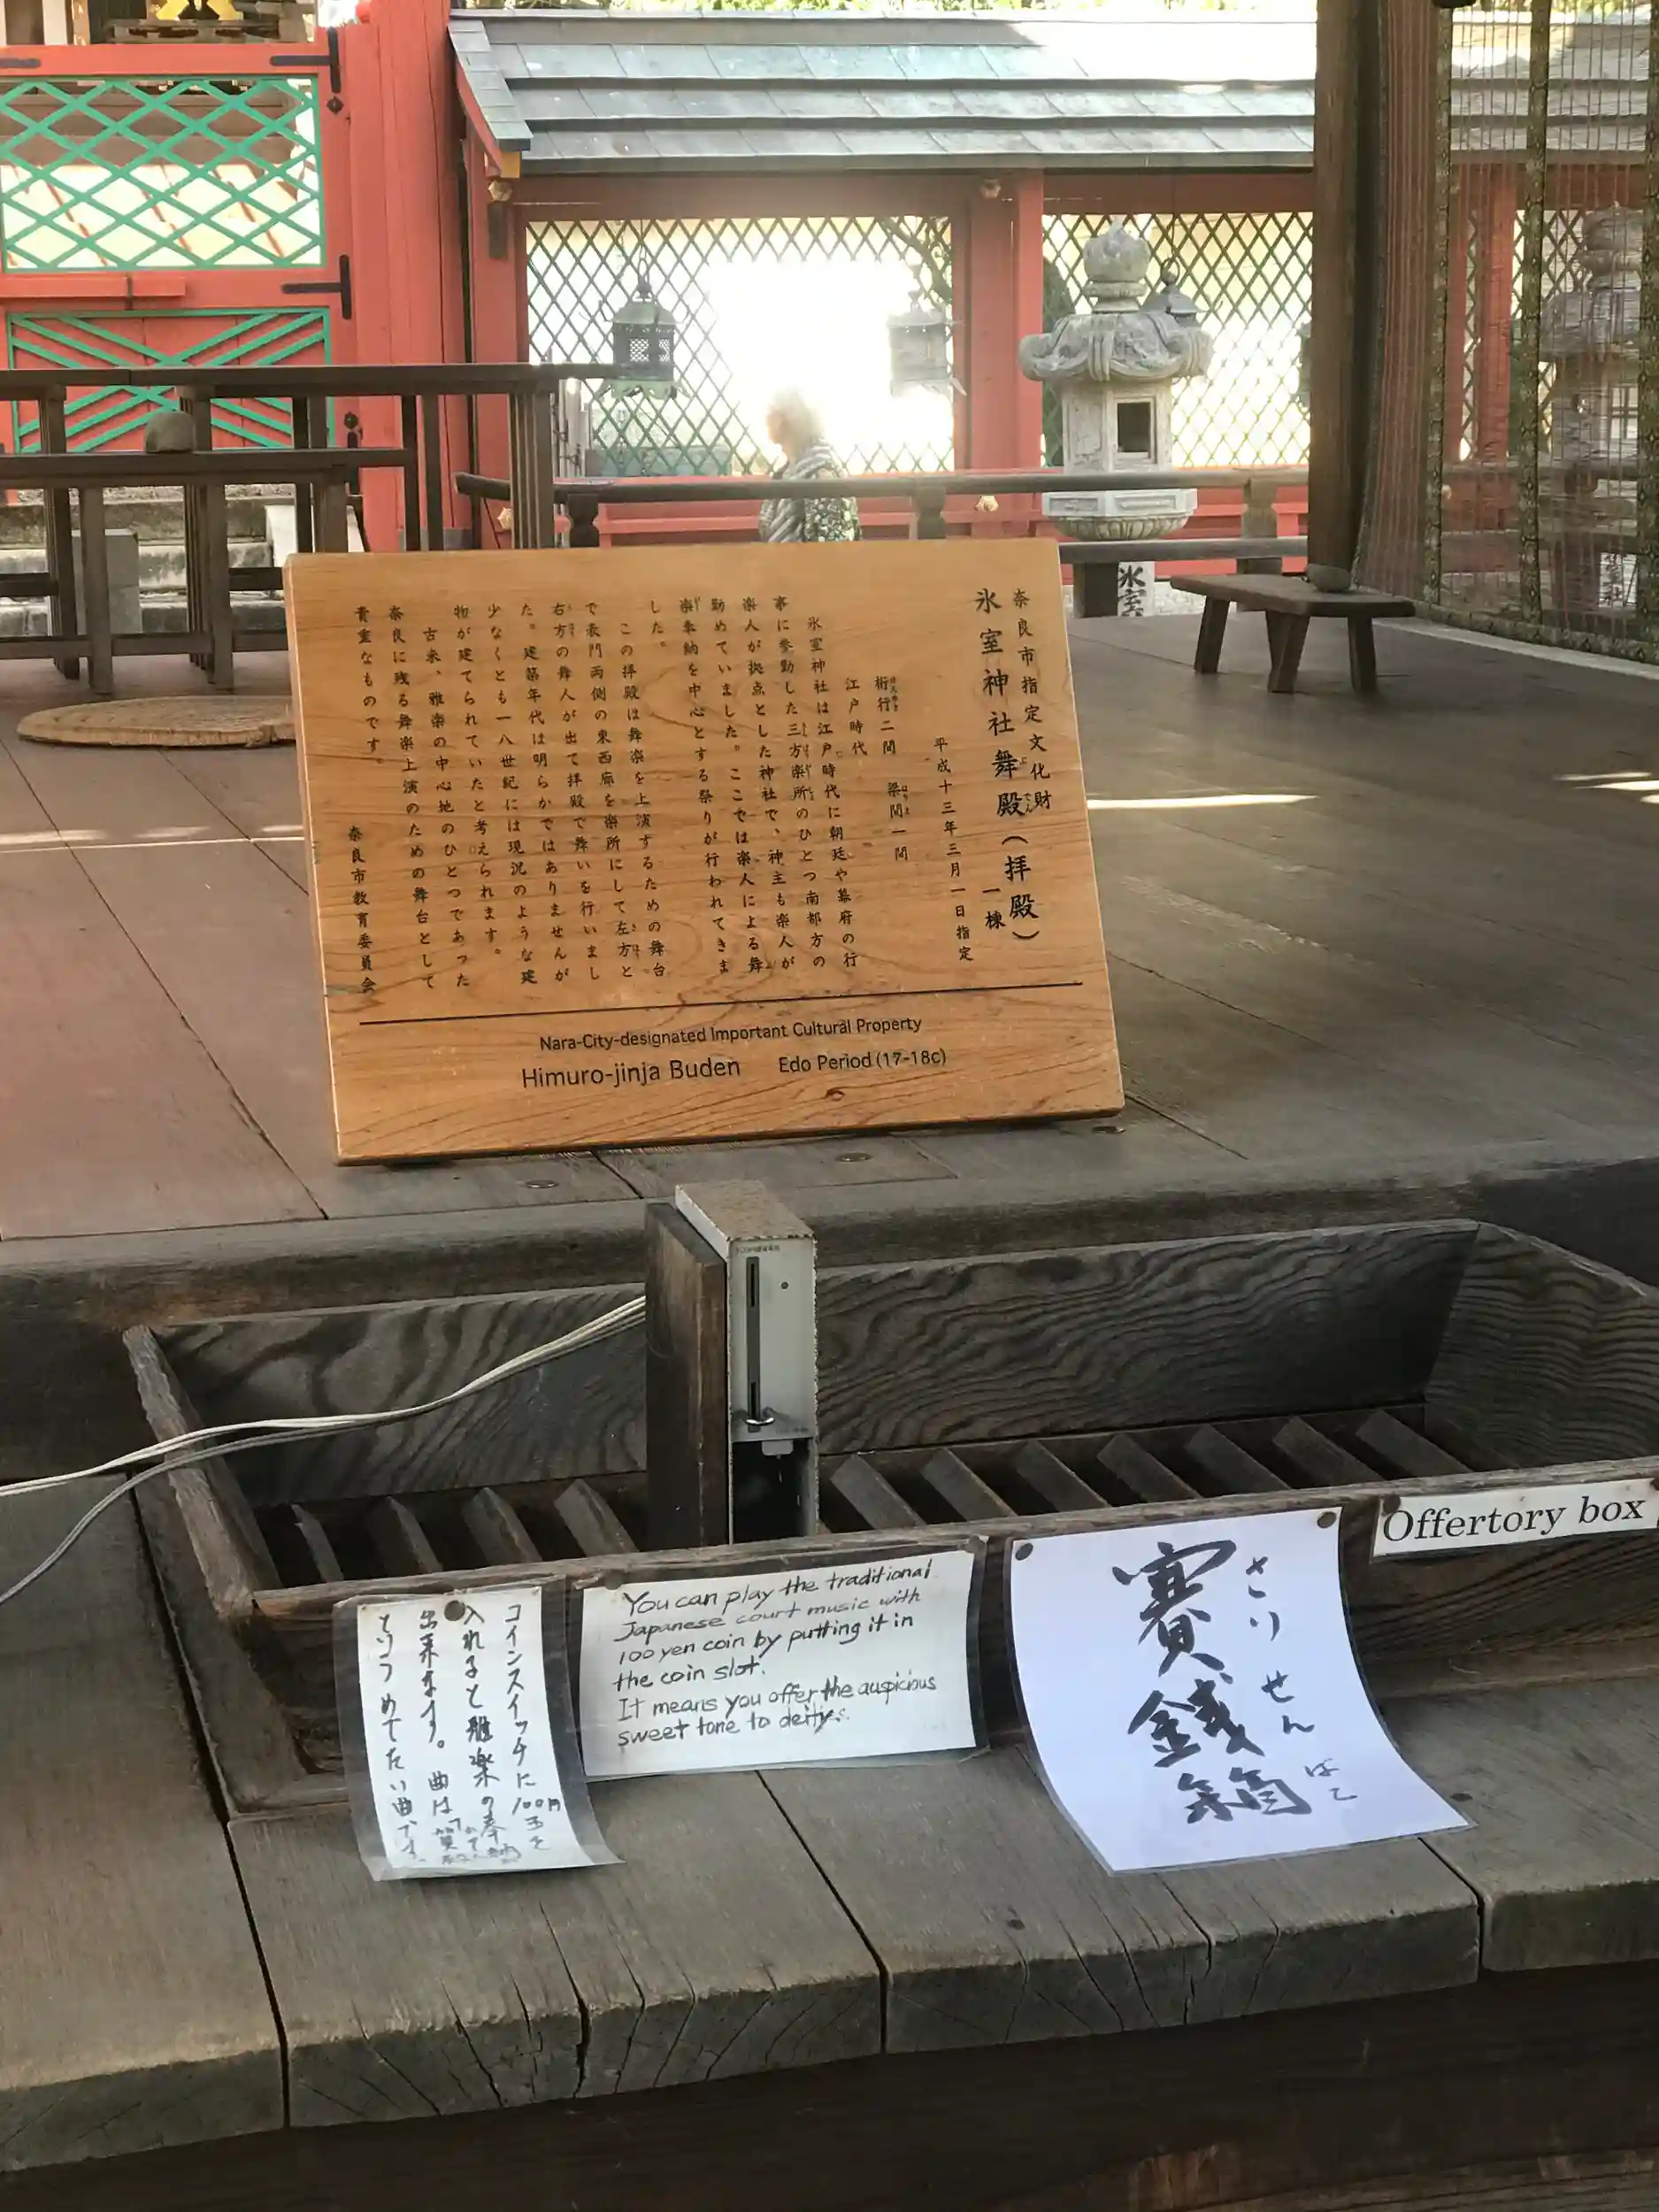 奈良市指定文化財
氷室神社舞殿(拝殿)
一棟
平成十三年三月一日指定
桁行二間 梁間一間
江戸時代
氷室神社は江戸時代に朝廷や幕府の行
事に参勤した三方楽所のひとつ南都方の
楽人が拠点とした神社で、神主も楽人が
勤めていました。ここでは楽人による舞
楽奉納を中心とする祭りが行われてきま
した。
この拝殿は舞楽を上演するための舞台
で表門両側の東西廊を楽所にして左方と
右方の舞人が出て拝殿で舞いを行いまし
た。建築年代は明らかではありませんが
少なくとも一八世紀には現況のような建
物が建てられていたと考えられます。
古来、雅楽の中心地のひとつであった
奈良に残る舞楽上演のための舞台として
貴重なものです。
奈良市教育委員会
Nara-City-designated Important Cultural Property
Himuro-jinja Buden Edo Period (17-18c)
氷室
Offertory box
さいせんばこ
賽銭箱
You can play the traditional
Japanese court music with
100 yen coin by putting it in
the coin slot.
It means you offer the auspicious
sweet tone to deity.
コインスイッチに100円玉を
入れると雅楽の奉納
出来ます。曲は
というめでたい曲です。